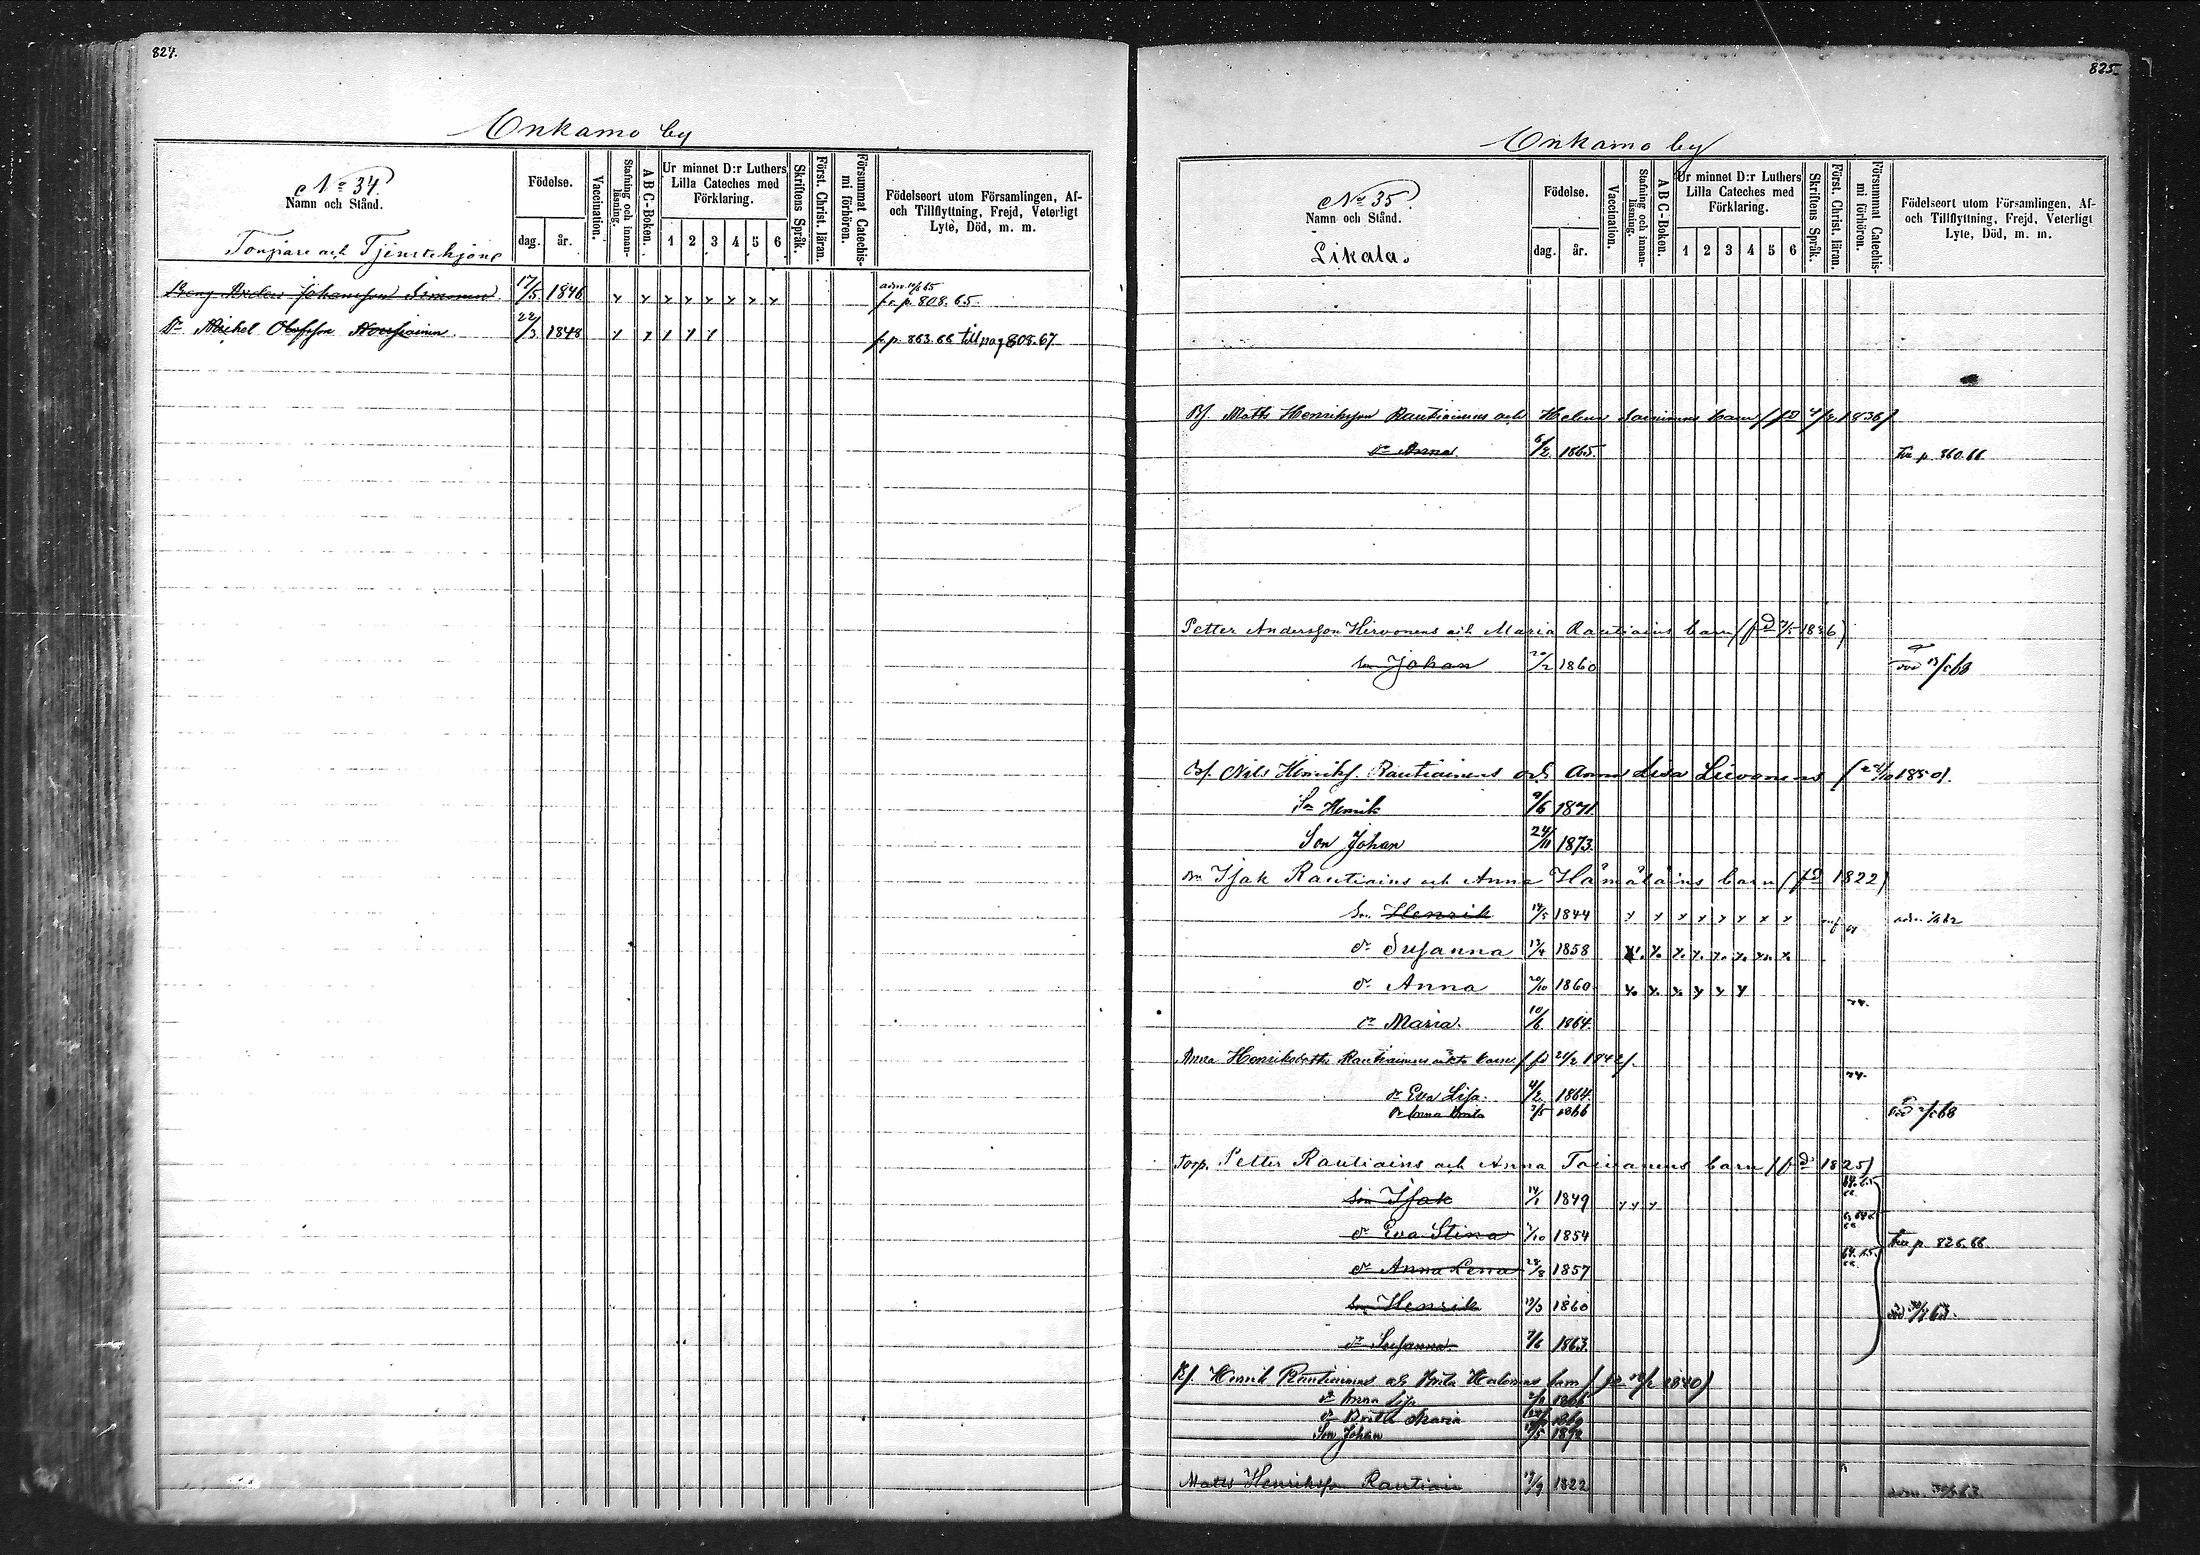 824.
Onkamo by
No 34.
Namn och Stånd.
Torpare och Tjenstehjon
Födelse.
dag.
år.
Vaccination.
Stafning och innan-läsning.
ABC-Boken.
Ur minnet D:r Luthers
Lilla Cateches med
Förklaring.
1 2 3 4 5 6
Skriftens Språk.
Först. Christ. läran.
Försummat Catechis-
mi förhören.
Födelseort utom Församlingen, Af-
och Tillflyttning, Frejd, Veterligt
Lyte, Död, m. m.
Johansson Simonen 17/5 1846 x x x x x x x x fr. p. 808. 65
Dr Michel Olofsson Nousiainen 22/3 1848 x x x x x fr. p. 863. 66 till pag 808. 67
825.
Onkamo by
No 35
Namn och Stånd.
Likala.
Födelse.
dag.
år.
Vaccination.
Stafning och innan-
läsning.
ABC-Boken.
Ur minnet D:r Luthers
Lilla Cateches med
Förklaring.
1 2 3 4 5 6
Skriftens Språk.
Först. Christ. läran.
Försummat Catechis-
mi förhören.
Födelseort utom Församlingen, Af-
och Tillflyttning, Frejd, Veterligt
Lyte, Död, m. m.
Bf. Matts Henriksson Rautiainens och Helena barn (fd 4/2 1836)
dr Anna 6/2 1865 p. 860. 66.
Petter Andersson Hirvonens och Maria Rautiains barn (fd 1836)
Son Johan 20/2 1860 död
Bf. Nils Henriks. Rautiainens och Anna Lisa Liivonens 1850).
Sn Henrik 9/6 1871.
Son Johan 24/11 1873.
Isak Rautiains och Anna Hämäläins barn (fd 1822)
Sn. Henrik 14/5 1844 x x x x x x x x
dr Susanna 13/4 1858 x x x x x x x x
dr Anna 20/10 1860 x x x x x x 74.
dr Maria. 10/6 1864
Anna Henriksdotter Rautiainens oäkta barn (fd 21/2 1842). 74.
dr Eva Lisa. 4/2 1864.
Dr Anna Brita 1866
Torp. Petter Rautiains och Anna barn (fd 1825)
Son Isak 14/1 1849 x x x
dr Eva Stina 1854 p. 826. 66.
dr Anna Lena 28/8 1857
Son Henrik 19/3 1860
dr Susanna 7/6 1863.
Bf. Henrik Rautiainens och Brita barn 1840)
dr Anna Lisa 1866
dr Brita Maria 1869
Son Johan 1872
Matts Henriksson Rautiain 17/9 1822